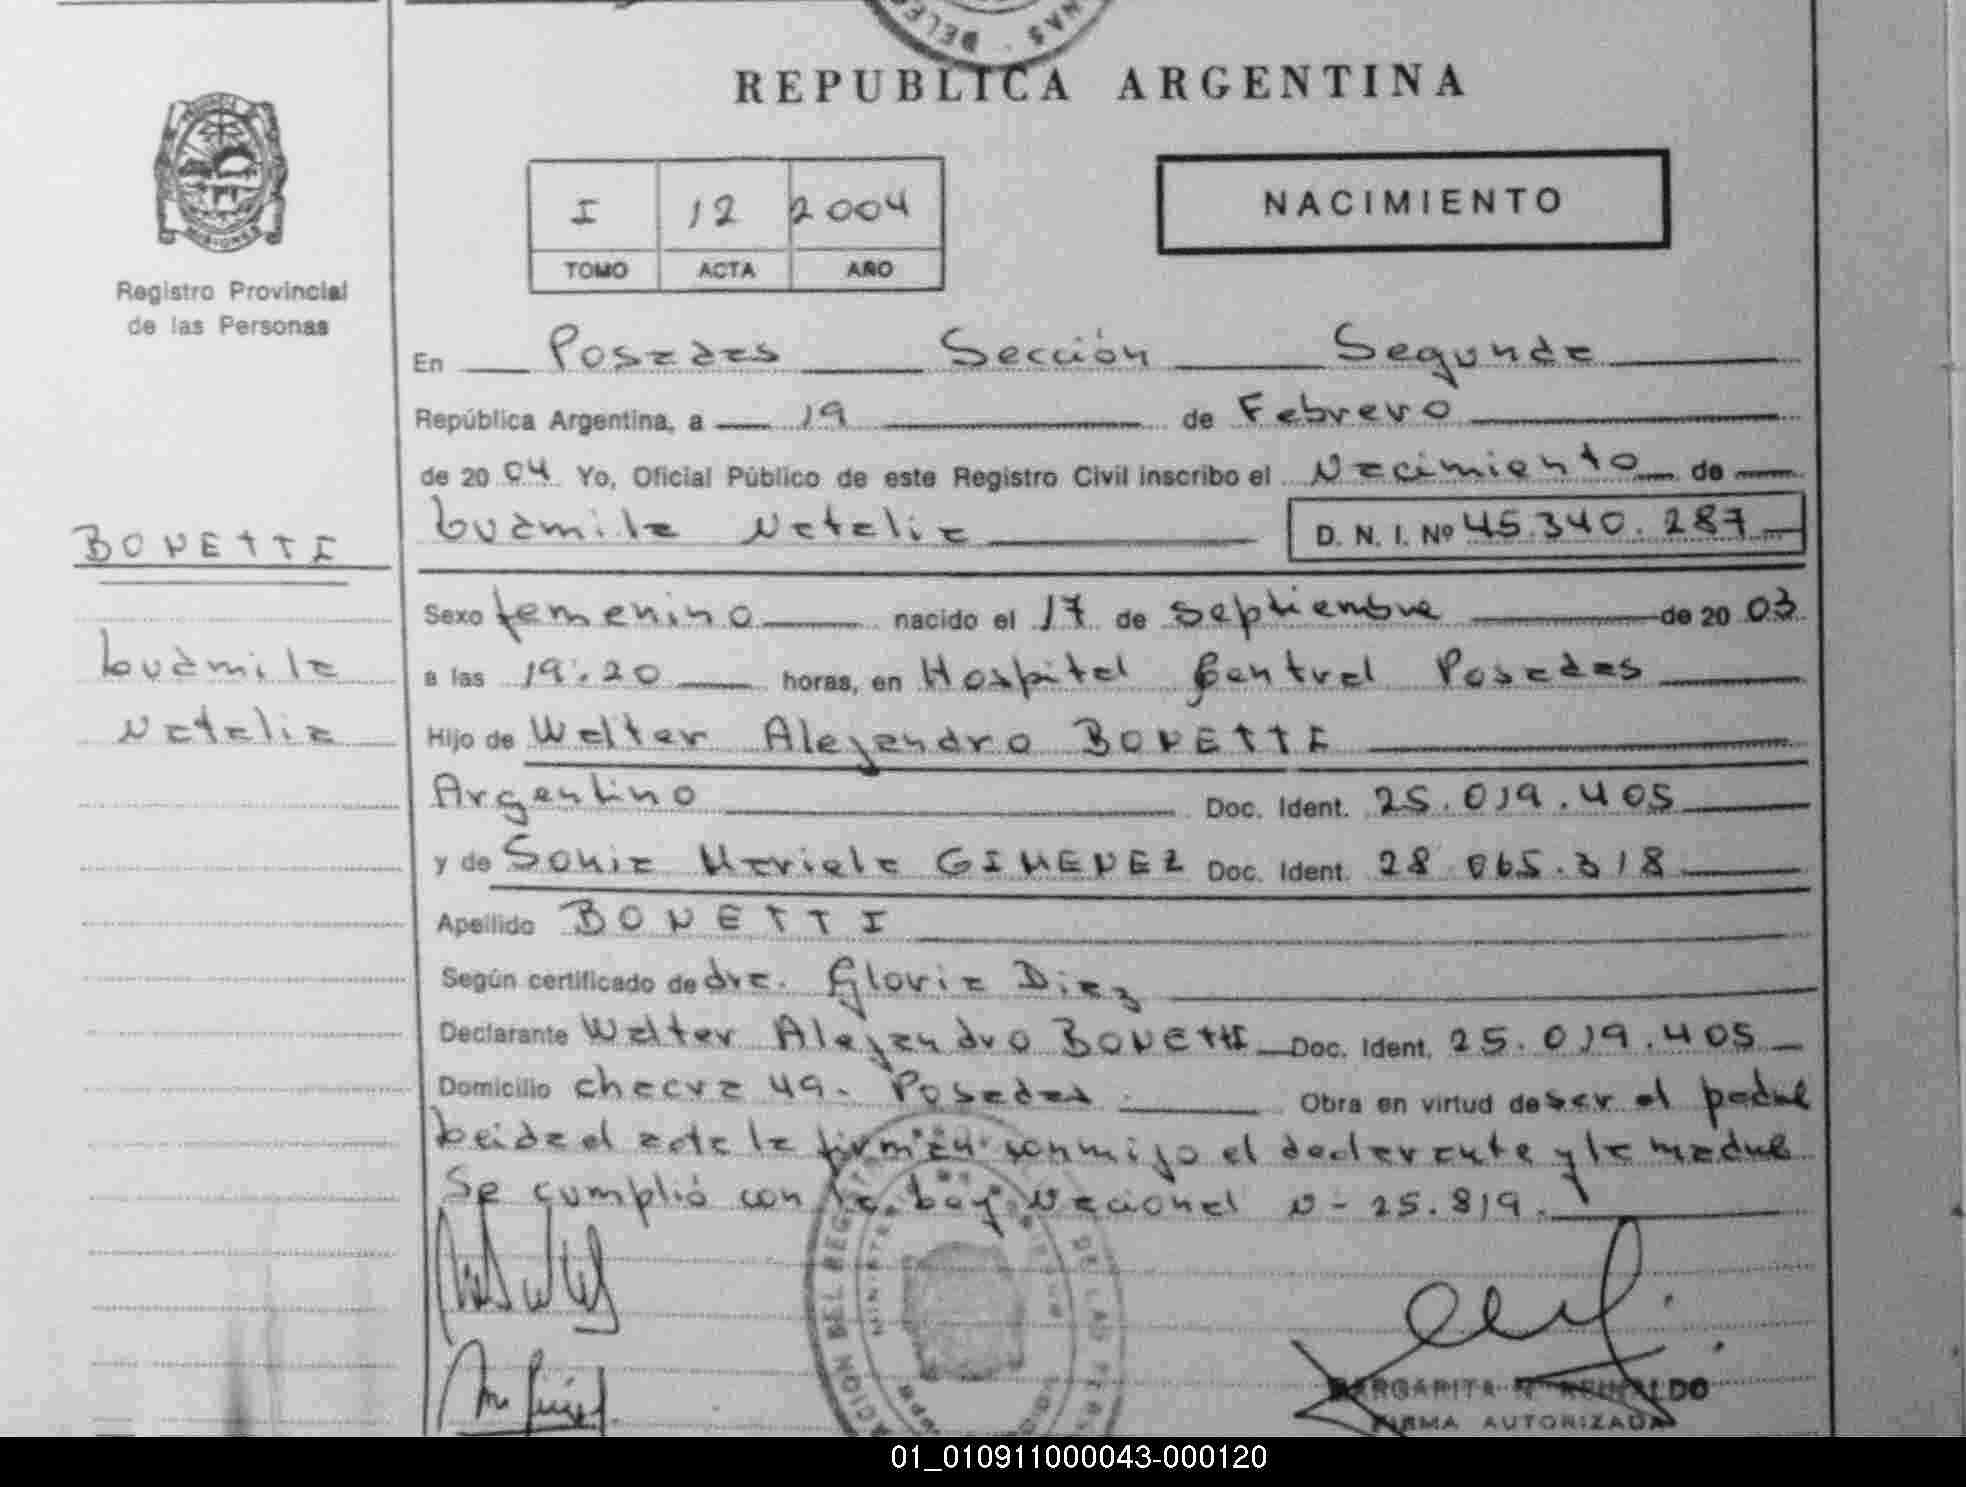 REPUBLICA ARGENTINA
MISIONES
Registro Provincial
de las Personas
I 12 2004
TOMO ACTA AÑO
NACIMIENTO
En Posadas Sección Segunda
República Argentina, a 19 de Febrero
de 2004 Yo, Oficial Público de este Registro Civil inscribo el Nacimiento de
Ludmila Natalia D. N. I. Nº 45.340.287
BONETTI
Ludmila
Natalia
Sexo femenino nacido el 17 de Septiembre de 2003
a las 19:20 horas, en Hospital Central Posadas
Hijo de Walter Alejandro BONETTI
Argentino Doc. Ident. 25.019.405
y de Sonia Mariela GIMENEZ Doc. Ident. 28.065.318
Apellido BONETTI
Según certificado de dra. Gloria Diez
Declarante Walter Alejandro BONETTI Doc. Ident. 25.019.405
Domicilio chacra 49. Posadas Obra en virtud de ser el padre
Leida el acta la firman conmigo el declarante y la madre
Se cumplió con la Ley Nacional N- 25.819.
DE LAS
MARGARITA
FIRMA AUTORIZADA
01_010911000043-000120